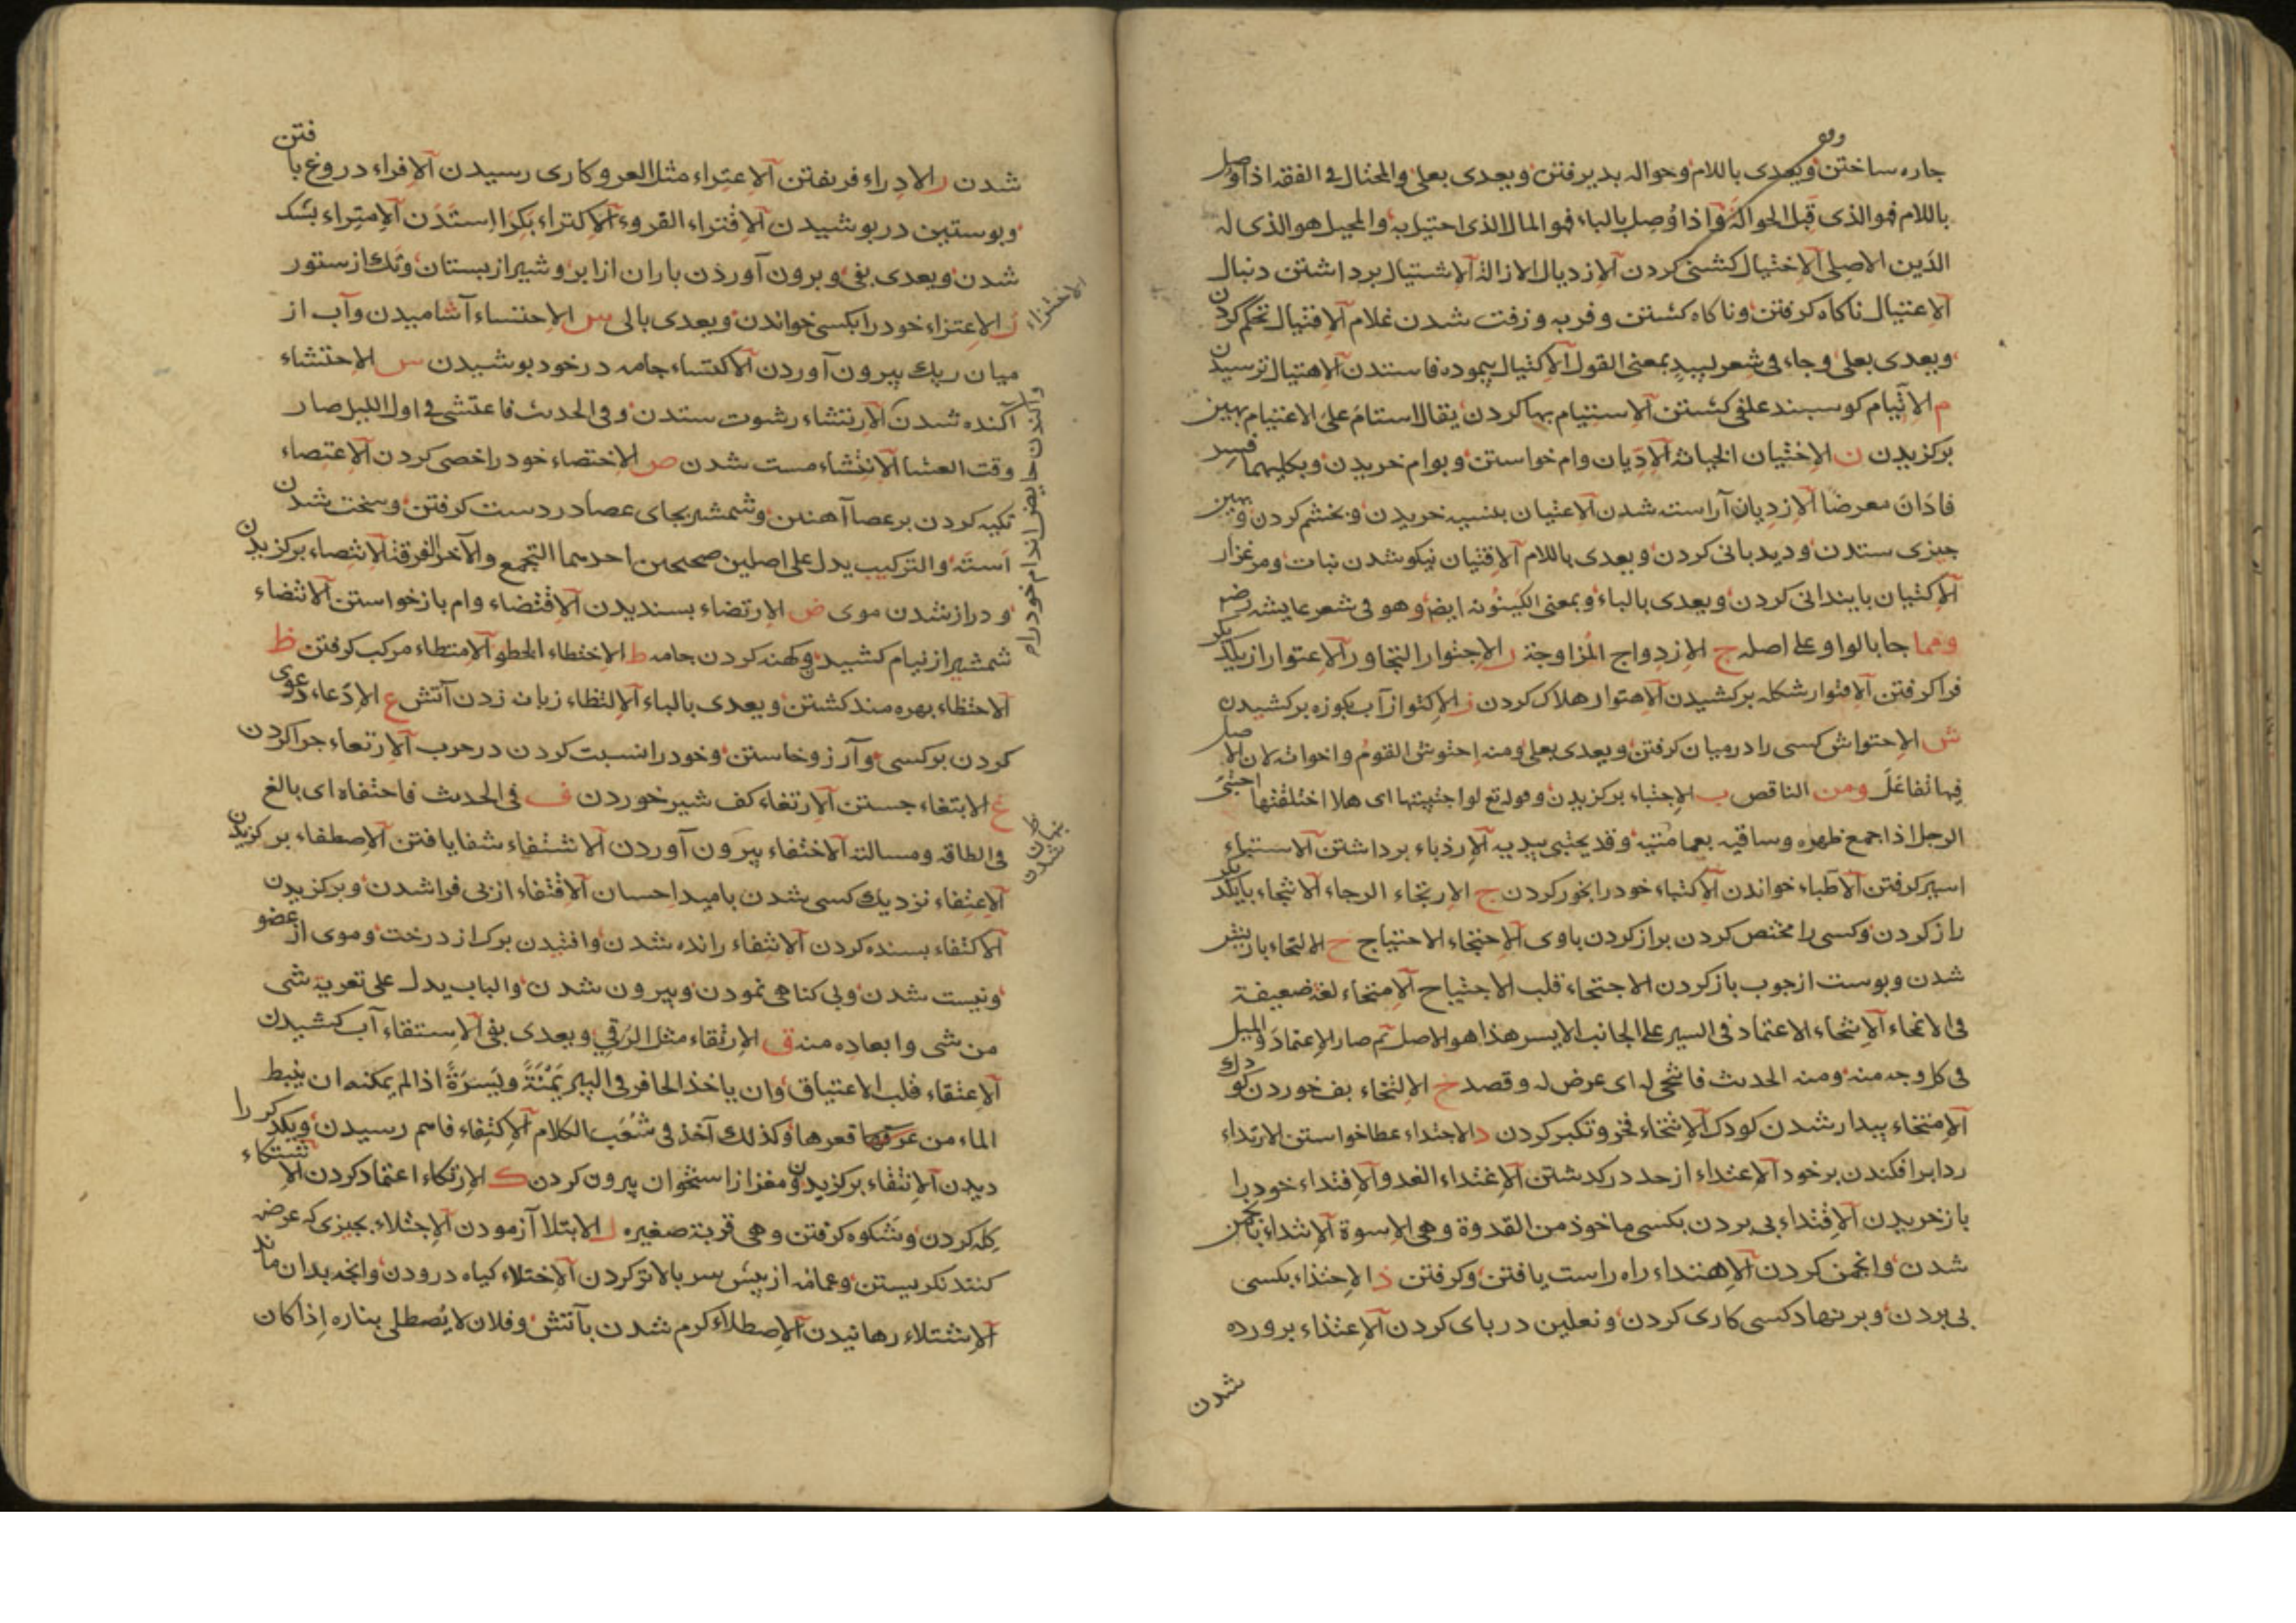 جاره ساختن ويعدى باللام وحواله بديرفتن ويعدى بعلى والمحتال فى الفقه اذا وصل
باللام فهو الذى قبل الحوالة واذا وصل بالباء فهو المال الذى احتيل به والمحيل هو الذى له
الدين الاصلى الاختيال كشنى كردن الازديال الازالة الاشتيال برداشتن دنبال
الاغتيال ناكاه كرفتن وناكاه كشتن وفربه وزفت شدن غلام الاقتيال تحكم كردن
ويعدى بعلى وجاء فى شعر لبيد بمعنى القول الاكتيال پيموده فا ستدن الاهتيال ترسيدن
م الاتيام كوسبند علفى كشتن الاستيام بها كردن يقال استام على الاعتيام بهين
بركزيدن ن الاختيان الخيانة الاديان وام خواستن وبوام خريدن وبكليهما فسر
فادان معرضا الازديان آراسته شدن الاعتيان بنسيه خريدن وبخشم كردن وبهين
جيزى ستدن وديدبانى كردن ويعدى باللام الاقتيان نيكو شدن نبات ومرغزار
الاكتيان بايندانى كردن ويعدى بالباء وبمعنى الكينونه ايض وهو فى شعر عايشه رضه
ومما جا بالواو على اصله ج الازدواج المزاوجة ر الاجتوار التجاور الاعتوار از يكديكر
فرا كرفتن الاقتوار شكله بركشيدن الاهتوار هلاك كردن ز الاكتواز آب بكوزه بركشيدن
ش الاحتواش كسى را درميان كرفتن ويعدى بعلى ومنه احتوش القوم واخواته لان الاصل
فيها تفاعل ومن الناقص ب الاجتباء بركزيدن وقوله تع لولا اجتبيتها اى هلا اختلقتها احتبى
الرجل اذا جمع ظهره وساقيه بعمامته وقد يحتبى بيديه الارذباء برداشتن الاستباء
اسير كرفتن الاطباء خواندن الاكتباء خود را بخور كردن ج الارتجاء الرجاء الانتجاء با يكديكر
راز كردن وكسى را مختص كردن براز كردن باوى الاحتجاء الاحتياج ح الالتحاء با ريش
شدن وپوست از جوب باز كردن الاجتحاء قلب الاجتياح الامتحاء لغة ضعيفة
فى الانمحاء الانتحاء الاعتماد فى السير على الجانب الايسر هذا هو الاصل ثم صار الاعتماد والميل
فى كل وجه منه ومنه الحديث فانتحى له اى عرض له وقصد خ الالتخاء بف خوردن كودك
الامتخاء بيدار شدن كودك الانتخاء فخر وتكبر كردن د الاجتداء عطا خواستن الارتداء
ردا برافكندن برخود الاعتداء از حد دركذشتن الاغتداء الغدو الافتداء خود را
باز خريدن الاقتداء بى بردن بكسى ماخوذ من القدوة وهى الاسوة الانتداء بانجمن
شدن وانجمن كردن الاهتداء راه راست يافتن وكرفتن ذ الاحتذاء بكسى
بى بردن وبرنهاد كسى كارى كردن ونعلين درپاى كردن الاغتذاء پرورده
شدن
شدن ر الادراء فريفتن الاعتراء مثل العرو وكارى رسيدن الافتراء دروغ بافتن
وپوستين درپوشيدن الاقتراء القرو الاكتراء بكرا استدن الامتراء بشك
شدن ويعدى بفى وبرون آوردن باران از ابر وشير از پستان وتك از ستور
ز الاعتزاء خود را بكسى خواندن ويعدى بالى س الاحتساء آشاميدن وآب از
ميان ريك بيرون آوردن الاكتساء جامه درخود پوشيدن ش الاحتشاء
آكنده شدن الارتشاء رشوت ستدن وفى الحديث فاعتشى فى اول الليل صار
وقت العشا الانتشاء مست شدن ص الاختصاء خود را خصى كردن الاعتصاء
تكيه كردن بر عصا آهنين وشمشير بجاى عصا در دست كرفتن وسخت شدن
استه والتركيب يدل على اصلين صحيحين احدهما التجمع والآخر الفرقة الانتصاء بركزيدن
ودراز شدن موى ض الارتضاء پسنديدن الاقتضاء وام باز خواستن الانتضاء
شمشير از نيام كشيدن وكهنه كردن جامه ط الاختطاء الخطو الامتطاء مركب كرفتن ظ
الاحتظاء بهره مند كشتن ويعدى بالباء الالتظاء زبانه زدن آتش ع الادعاء دعوى
كردن بر كسى وآرزو خاستن وخود را نسبت كردن درحرب الارتعاء جرا كردن
غ الابتغاء جستن الارتغاء كف شير خوردن ف فى الحديث فاحتفاه اى بالغ
فى الطاقه ومسالته الاختفاء بيرون آوردن الاشتفاء شفا يافتن الاصطفاء بركزيدن
الاعتفاء نزديك كسى شدن باميد احسان الاقتفاء از پى فرا شدن وبركزيدن
الاكتفاء بسنده كردن الانتفاء رانده شدن وافتيدن برك از درخت وموى از عضو
ونيست شدن وبى كناهى نمودن وبيرون شدن والباب يدل على تعرية شى
من شى وابعاده منه ق الارتقاء مثل الرقى ويعدى بفى الاستقاء آب كشيدن
الاعتقاء قلب الاعتياق وان ياخذ الحافر فى البير يمنة ويسرة اذا لم يمكنه ان ينبط
الماء من قعرها وكذلك آخذ فى شعب الكلام الالتقاء فاهم رسيدن ويكديكر را
ديدن الانتقاء بركزيدن ومغز از استخوان بيرون كردن ك الارتكاء اعتماد كردن الاشتكاء
كله كردن وشكوه كرفتن وهى قربة صغيره ل الابتلا آزمودن الاجتلاء بجيزى كه عرضه
كنند نكريستن وعمامه از پيش سر بالاتر كردن الاختلاء كياه درودن وانجه بدان ماند
الاشتلاء رهانيدن الاصطلاء كرم شدن بآتش وفلان لا يصطلى بناره اذا كان
الاختزاء
پنهان شدن